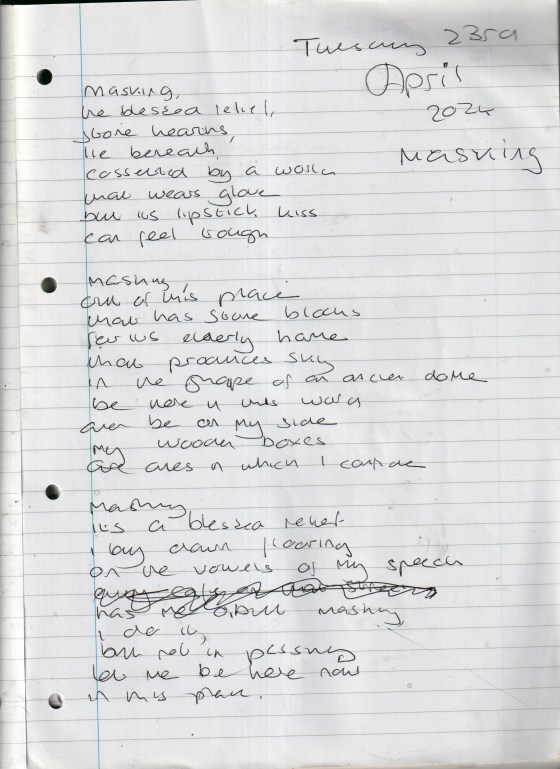 Tuesday 23rd
April
2024
Masking
Masking,
the blessed relief,
stone hearths,
lie beneath,
caressed by a world
that wears glove
but its lipstick kiss
can feel rough
Masking,
out of this place
that has stone blocks
for its elderly home
that produces sky
in the shape of an ancient dome
be here in this ward
and be on my side
my wooden boxes
are ones in which I confide
Masking
it's a blessed relief
I lay down flooring
on the vowels of my speech
has me masking
I do it,
but not in passing
let me be here now
in this place.